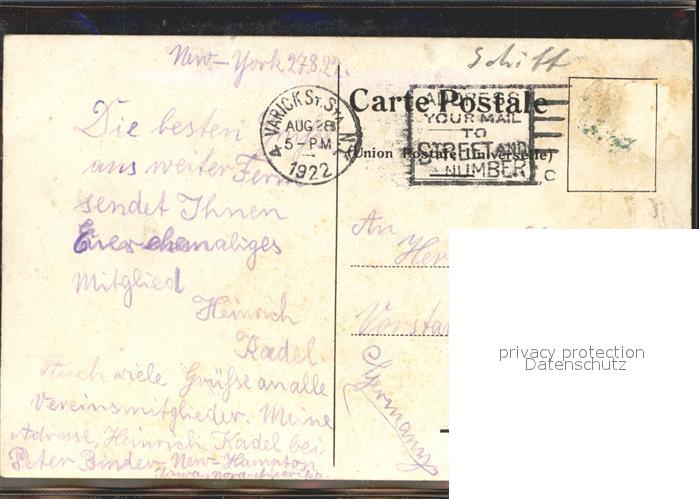 New-York 27.8.22.
Schiff
Carte Postale
(Union Postale Universelle)
VARICK ST. STA. N.Y.
AUG 28
5-PM
1922
ADDRESS
YOUR MAIL
TO
STREET AND
NUMBER
C
Die besten
aus weiter Ferne
sendet Ihnen
Euer ehemaliges
Mitglied
Heinrich
Kadel.
Auch viele Grüße an alle
Vereinsmitglieder. Meine
Adresse, Heinrich Kadel bei
Peter Binder New-Hampton
Iowa, Nord-Amerika
An
Her
Vorstan
Germany
privacy protection
Datenschutz